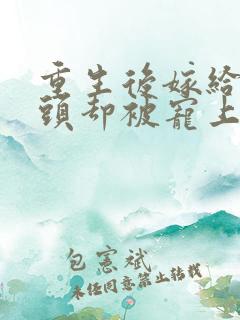 重生後嫁給
頭却被寵上
包憲斌
未经同意禁止转载